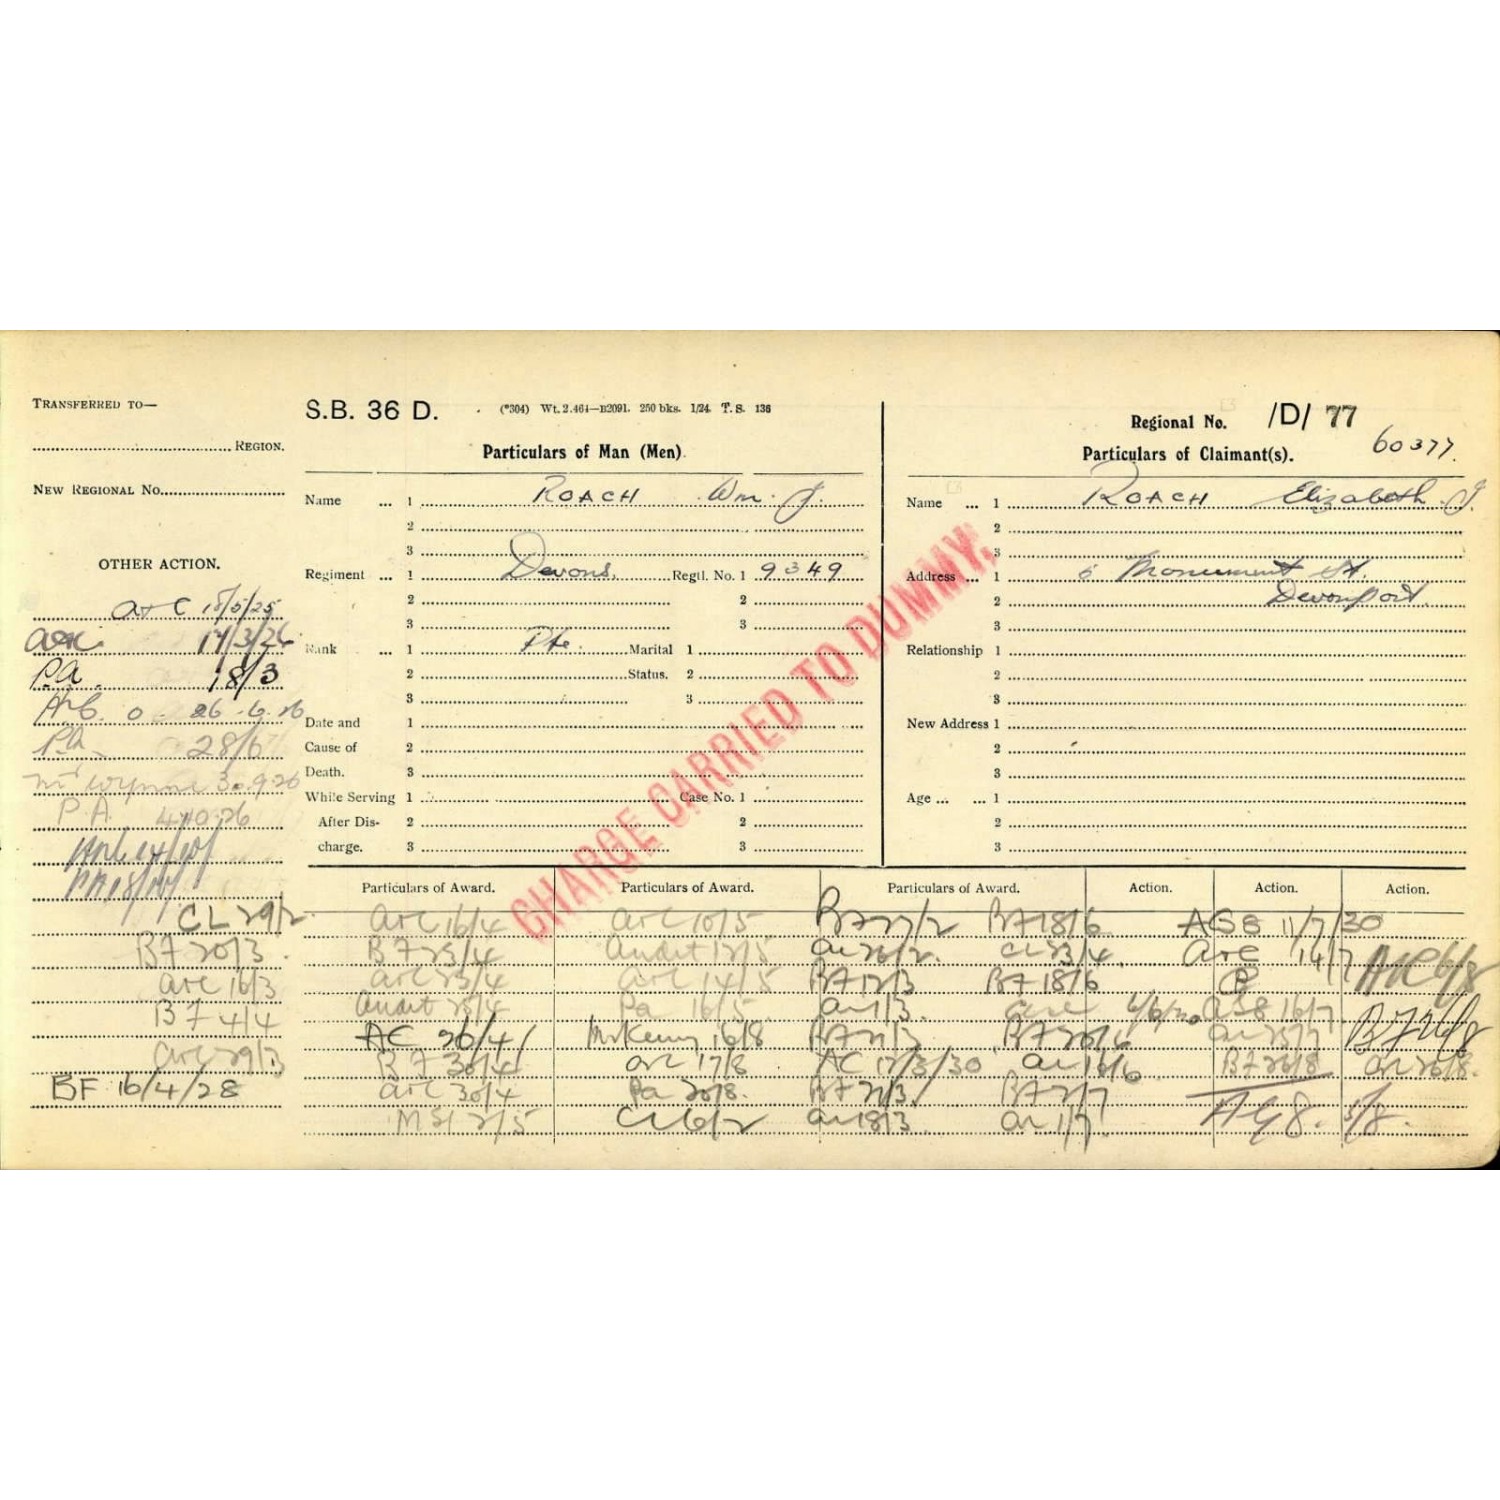 TRANSFERRED TO—
REGION.
NEW REGIONAL No.
OTHER ACTION.
A+C 18/5/25
17/3/26
P.A. 18/3
26.6.26
P.A. 28/6
Wynne 30.9.26
P.A. 4.10.26
CL 29/2
BF 20/3
A+C 16/3
BF 4/4
A+C 29/3
BF 16/4/28
S.B. 36 D.
(*304) Wt.2.464—B2091. 250 bks. 1/24. T.S. 136
Particulars of Man (Men).
Name ... 1 ROACH Wm. J.
2
3
Regiment ... 1 Devons. Regtl. No. 1 9349
2 2
3 3
Rank ... 1 Pte. Marital 1
2 Status. 2
3 3
Date and 1
Cause of 2
Death. 3
While Serving 1 Case No. 1
After Dis- 2 2
charge. 3 3
CHARGE CARRIED TO DUMMY.
Regional No. /D/ 77
60377
Particulars of Claimant(s).
Name ... 1 ROACH Elizabeth J.
2
3
Address ... 1 6 Monument St.
2 Devonport.
3
Relationship 1
2
3
New Address 1
2
3
Age ... ... 1
2
3
Particulars of Award. Particulars of Award. Particulars of Award. Action. Action. Action.
A+C 16/4 A+C 10/5 BF 27/2 BF 18/6 AG8 11/7/30
BF 23/4 Audit 12/5 26/2 CL 23/4 A+C 14/7 A+C 6/8
A+C 23/4 A+C 14/5 BF 12/3 BF 18/6
Audit 28/4 Pa 16/5 1/3 AG8 16/7
AC 26/4 McKenny 16/8 BF 20/6 25/7 BF 26/8
BF 30/4 A+C 17/8 AC 12/3/30 16/6 BF 26/8 26/8
A+C 30/4 Pa 20/8 BF 21/3 BF 2/7
MS1 2/5 CL 6/2 18/3 1/7 AG8. 5/8.